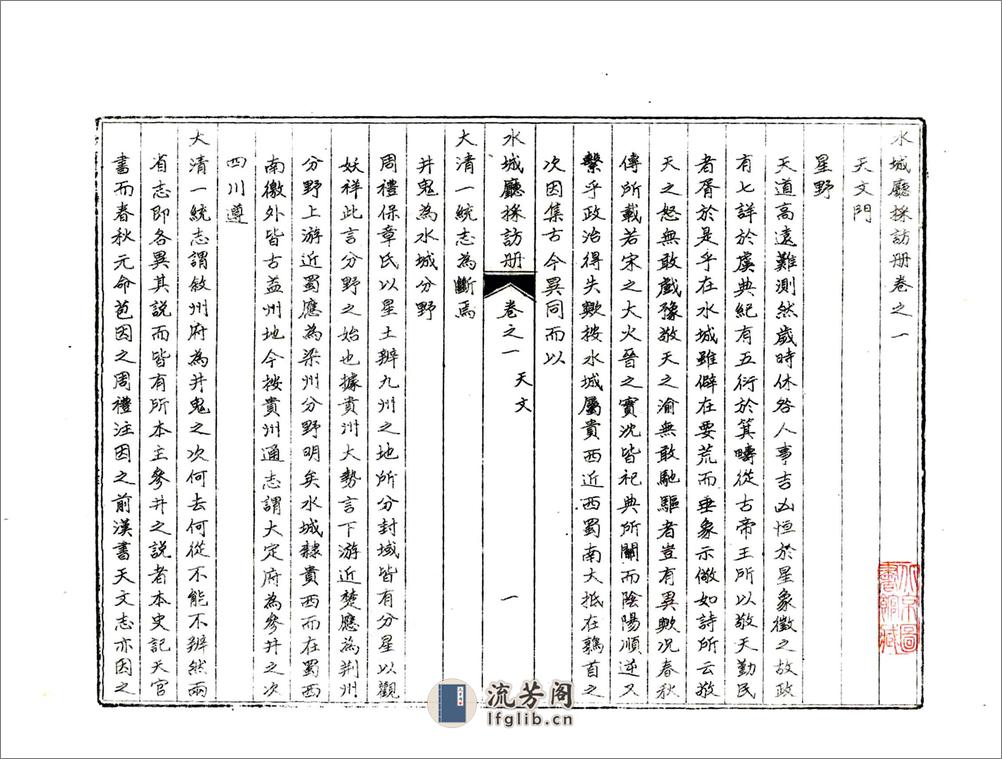 水城廳採訪册卷之一
天文門
星野
天道高遠難測然歲時休咎人事吉凶恒於星象徵之故政
有七詳於虞典紀有五衍於箕疇從古帝王所以敬天勤民
者胥於是乎在水城雖僻在要荒而垂象示儆如詩所云敬
天之怒無敢戲豫敬天之渝無敢馳驅者豈有異歟况春秋
傳所載若宋之大火晉之實沈皆祀典所關而陰陽順逆又
繫乎政治得失歟按水城屬貴西近西蜀南大抵在鶉首之
次因集古今異同而以
水城廳採訪册 卷之一 天文 一
大清一統志為斷焉
井鬼為水城分野
周禮保章氏以星土辨九州之地所分封域皆有分星以觀
妖祥此言分野之始也據貴州大勢言下游近楚應為荆州
分野上游近蜀應為梁州分野明矣水城隸貴西而在蜀西
南徼外皆古益州地今按貴州通志謂大定府為參井之次
四川遵
大清一統志謂敘州府為井鬼之次何去何從不能不辨然兩
省志即各異其説而皆有所本主參井之説者本史記天官
書而春秋元命苞因之周禮注因之前漢書天文志亦因之
北京圖
書館藏
流芳阁
lfglib.cn